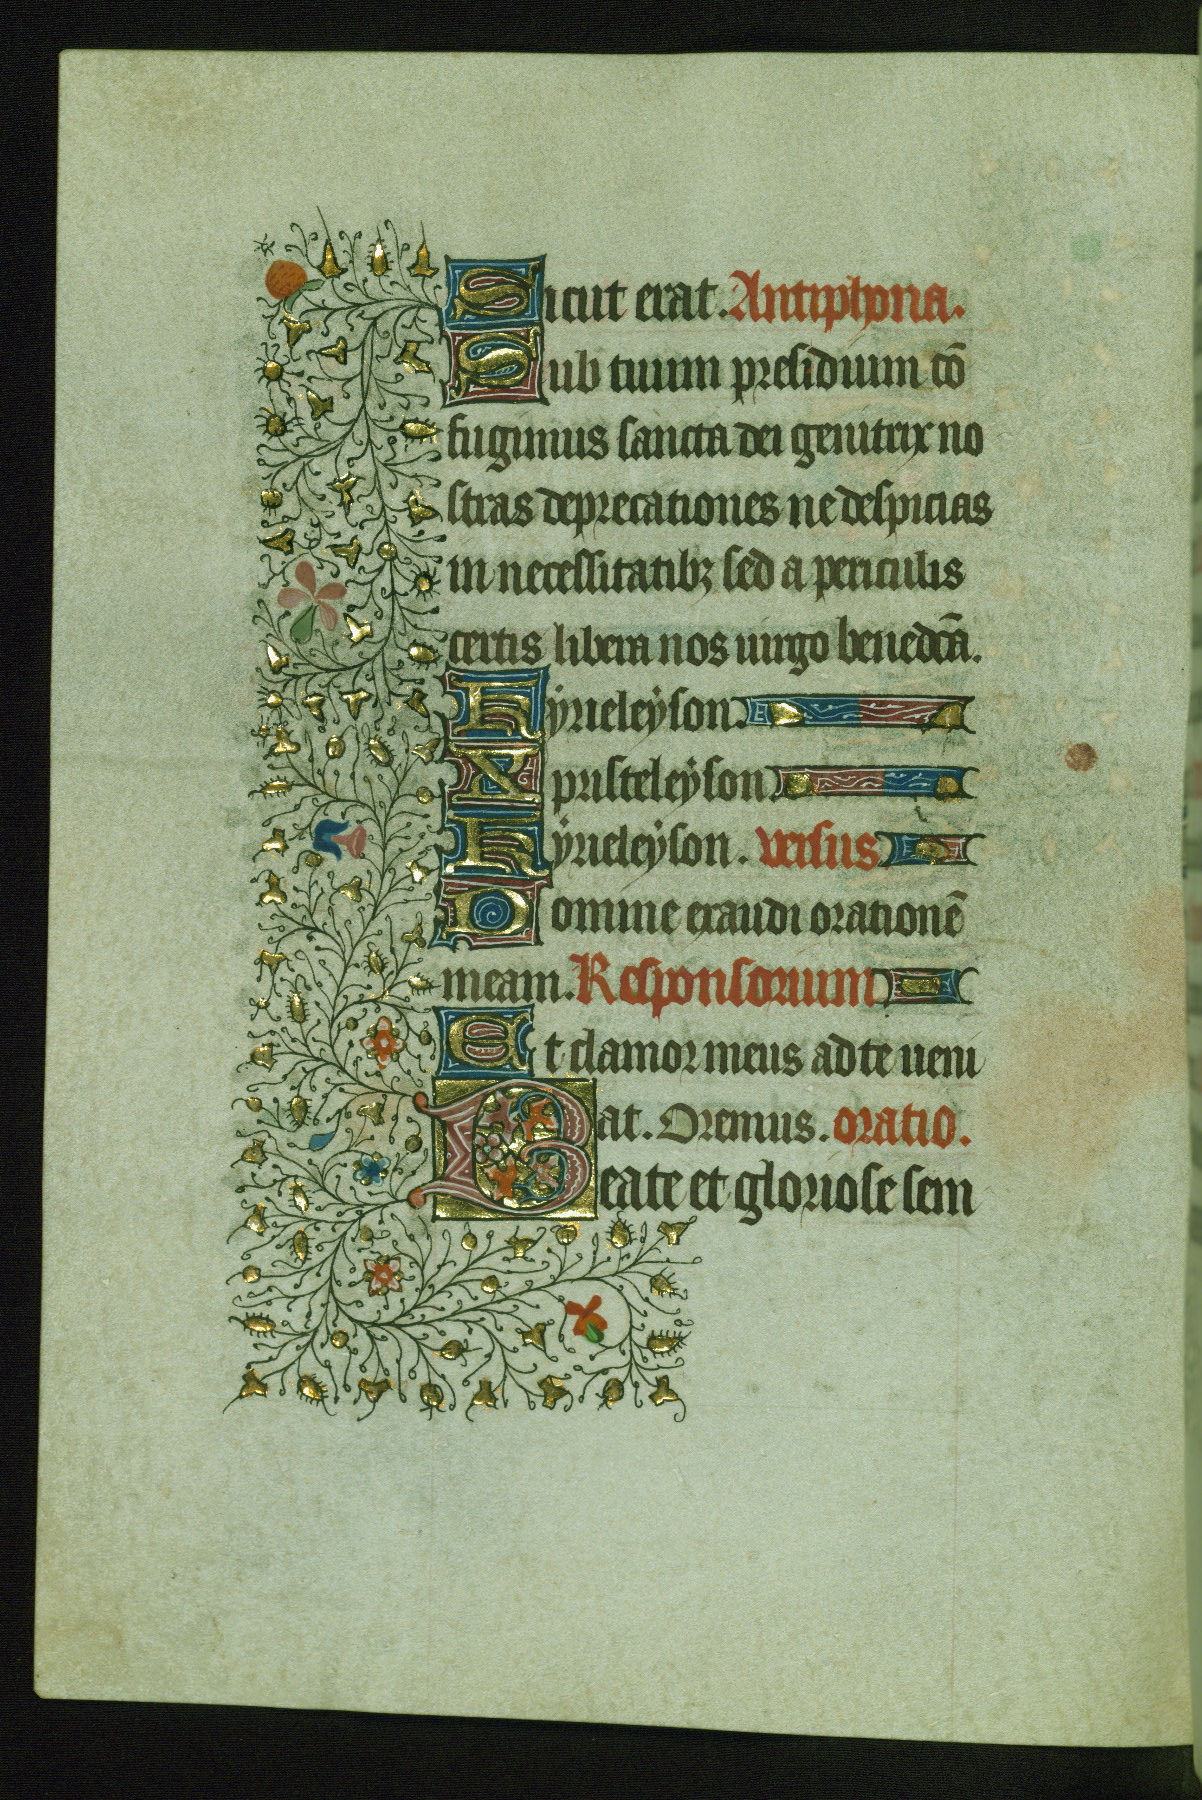 Sicut erat. Antiphona.
Sub tuum presidium cō
fugimus sancta dei genitrix no
stras deprecationes ne despicias
in necessitatibꝫ sed a periculis
certis libera nos uirgo benedcā.
Kyrieleyson.
Xpristeleyson.
Kyrieleyson. versus
Domine exaudi orationē
meam. Responsorium
Et clamor meus ad te ueni
at. Oremus. oratio.
Beate et gloriose sem